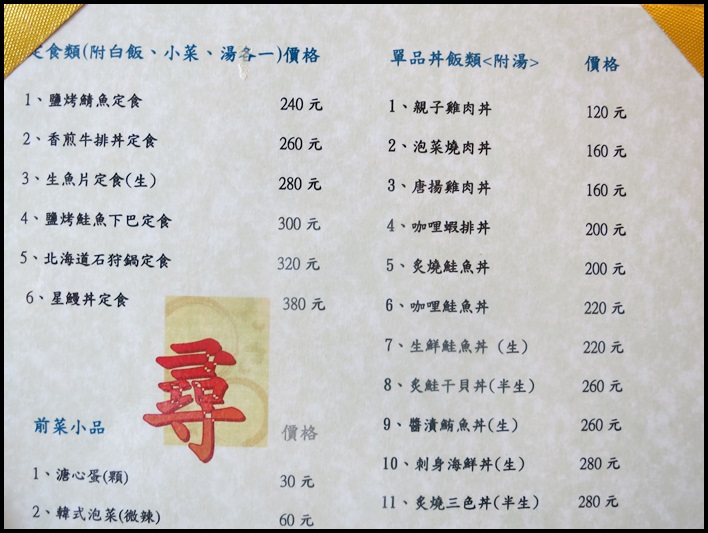 定食類(附白飯、小菜、湯各一)價格
1、鹽烤鯖魚定食 240 元
2、香煎牛排丼定食 260 元
3、生魚片定食(生) 280 元
4、鹽烤鮭魚下巴定食 300 元
5、北海道石狩鍋定食 320 元
6、星鰻丼定食 380 元
尋
前菜小品 價格
1、溏心蛋(顆) 30 元
2、韓式泡菜(微辣) 60 元
單品丼飯類<附湯> 價格
1、親子雞肉丼 120 元
2、泡菜燒肉丼 160 元
3、唐揚雞肉丼 160 元
4、咖哩蝦排丼 200 元
5、炙燒鮭魚丼 200 元
6、咖哩鮭魚丼 220 元
7、生鮮鮭魚丼（生） 220 元
8、炙鮭干貝丼(半生) 260 元
9、醬漬鮪魚丼(生) 260 元
10、刺身海鮮丼(生) 280 元
11、炙燒三色丼(半生) 280 元